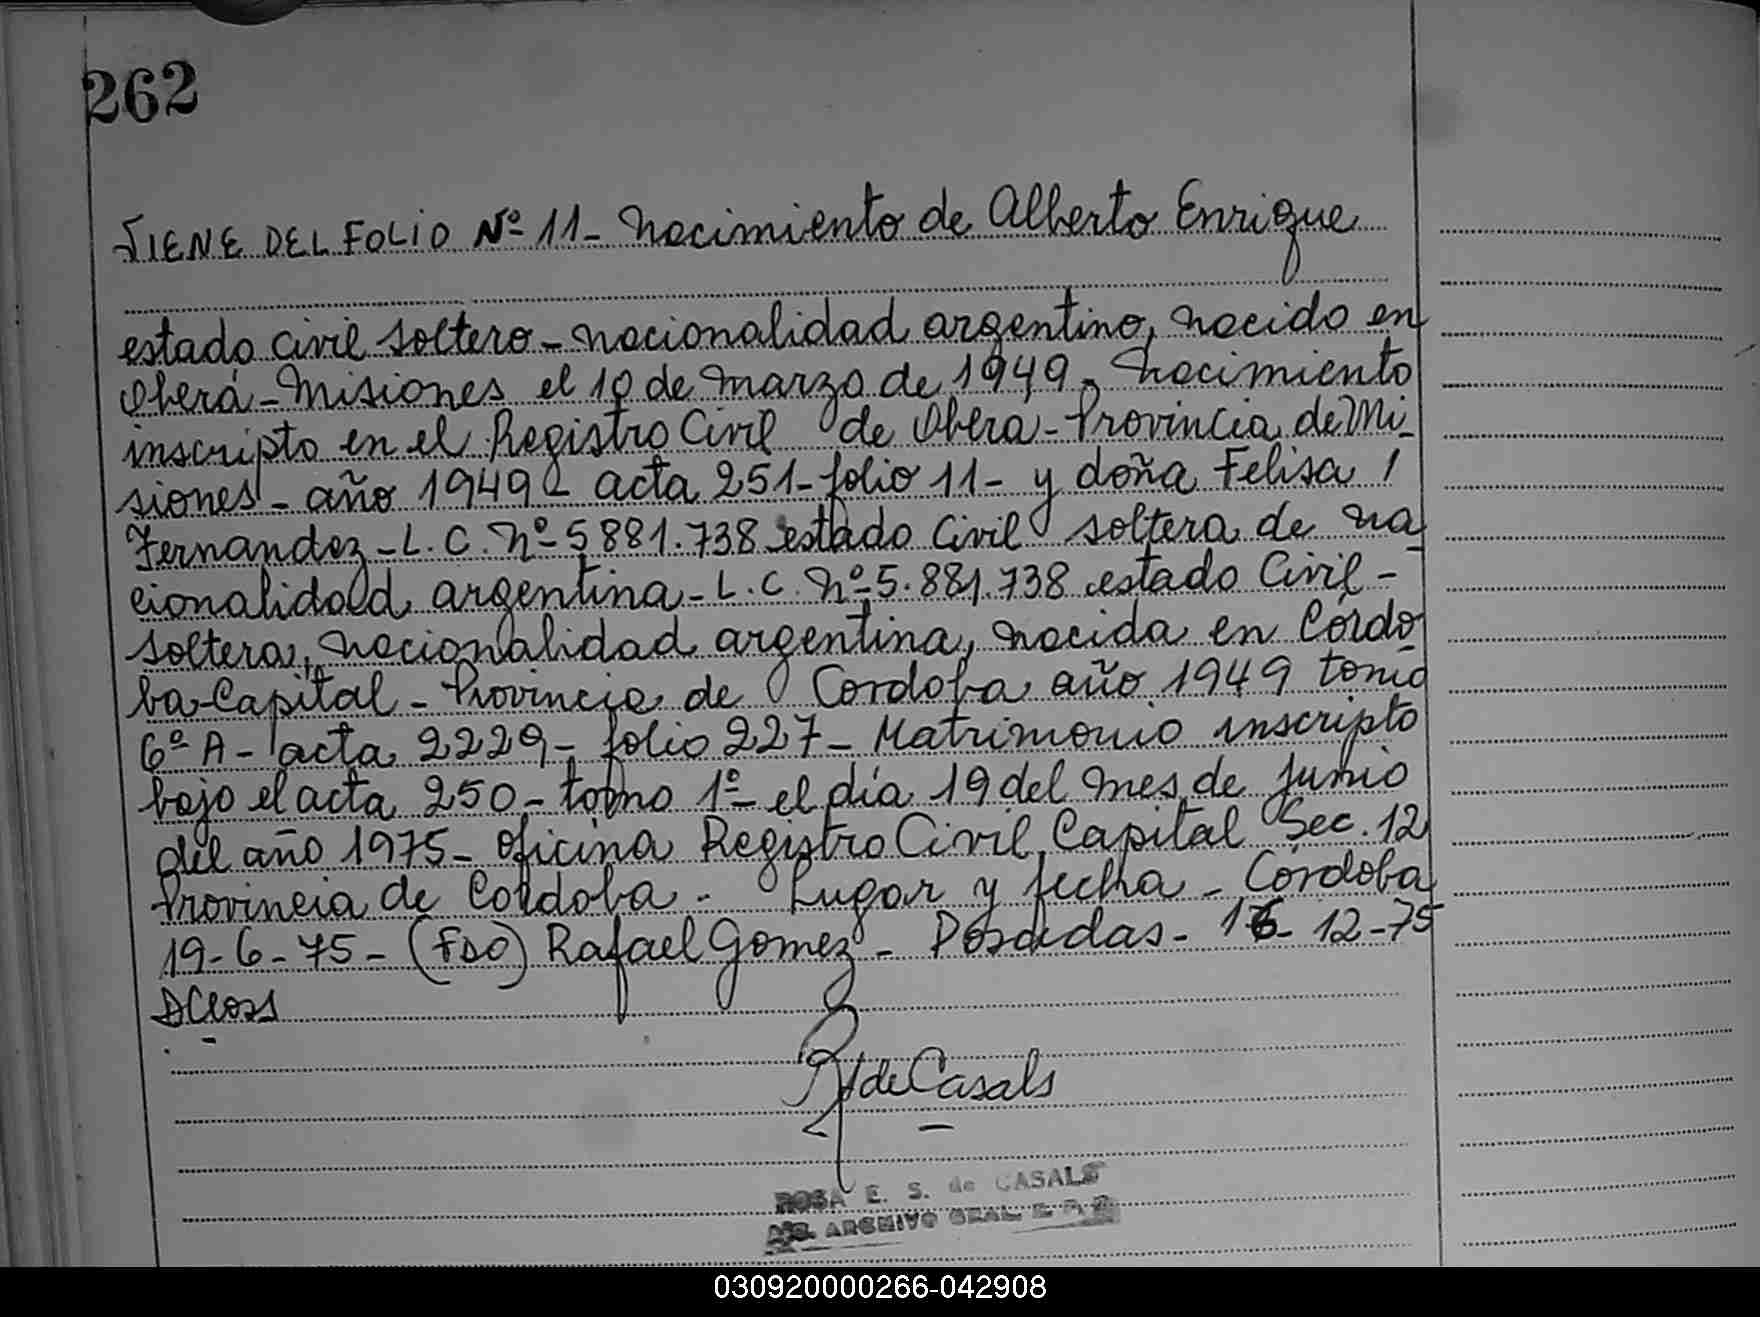 262
VIENE DEL FOLIO Nº 11- Nacimiento de Alberto Enrique
estado civil soltero - nacionalidad argentino, nacido en
Oberá - Misiones el 10 de marzo de 1949 - Nacimiento
inscripto en el Registro Civil de Oberá - Provincia de Mi_
siones - año 1949 - acta 251 - folio 11 - y doña Felisa /
Fernandez - L.C. Nº 5881.738 estado Civil soltera de na_
cionalidad argentina - L.C. Nº 5.881.738 estado Civil -
soltera, nacionalidad argentina, nacida en Córdo
ba - Capital - Provincia de Cordoba año 1949 tomo
6º A - acta 2229 - folio 227 - Matrimonio inscripto
bajo el acta 250 - tomo 1º - el día 19 del mes de Junio
del año 1975 - Oficina Registro Civil Capital Sec. 12
Provincia de Cordoba - Lugar y fecha - Córdoba
19-6-75 - (FDO) Rafael Gomez - Posadas - 16-12-75
de Casals
ROSA E. S. de CASALS
ARCHIVO GRAL.
030920000266-042908